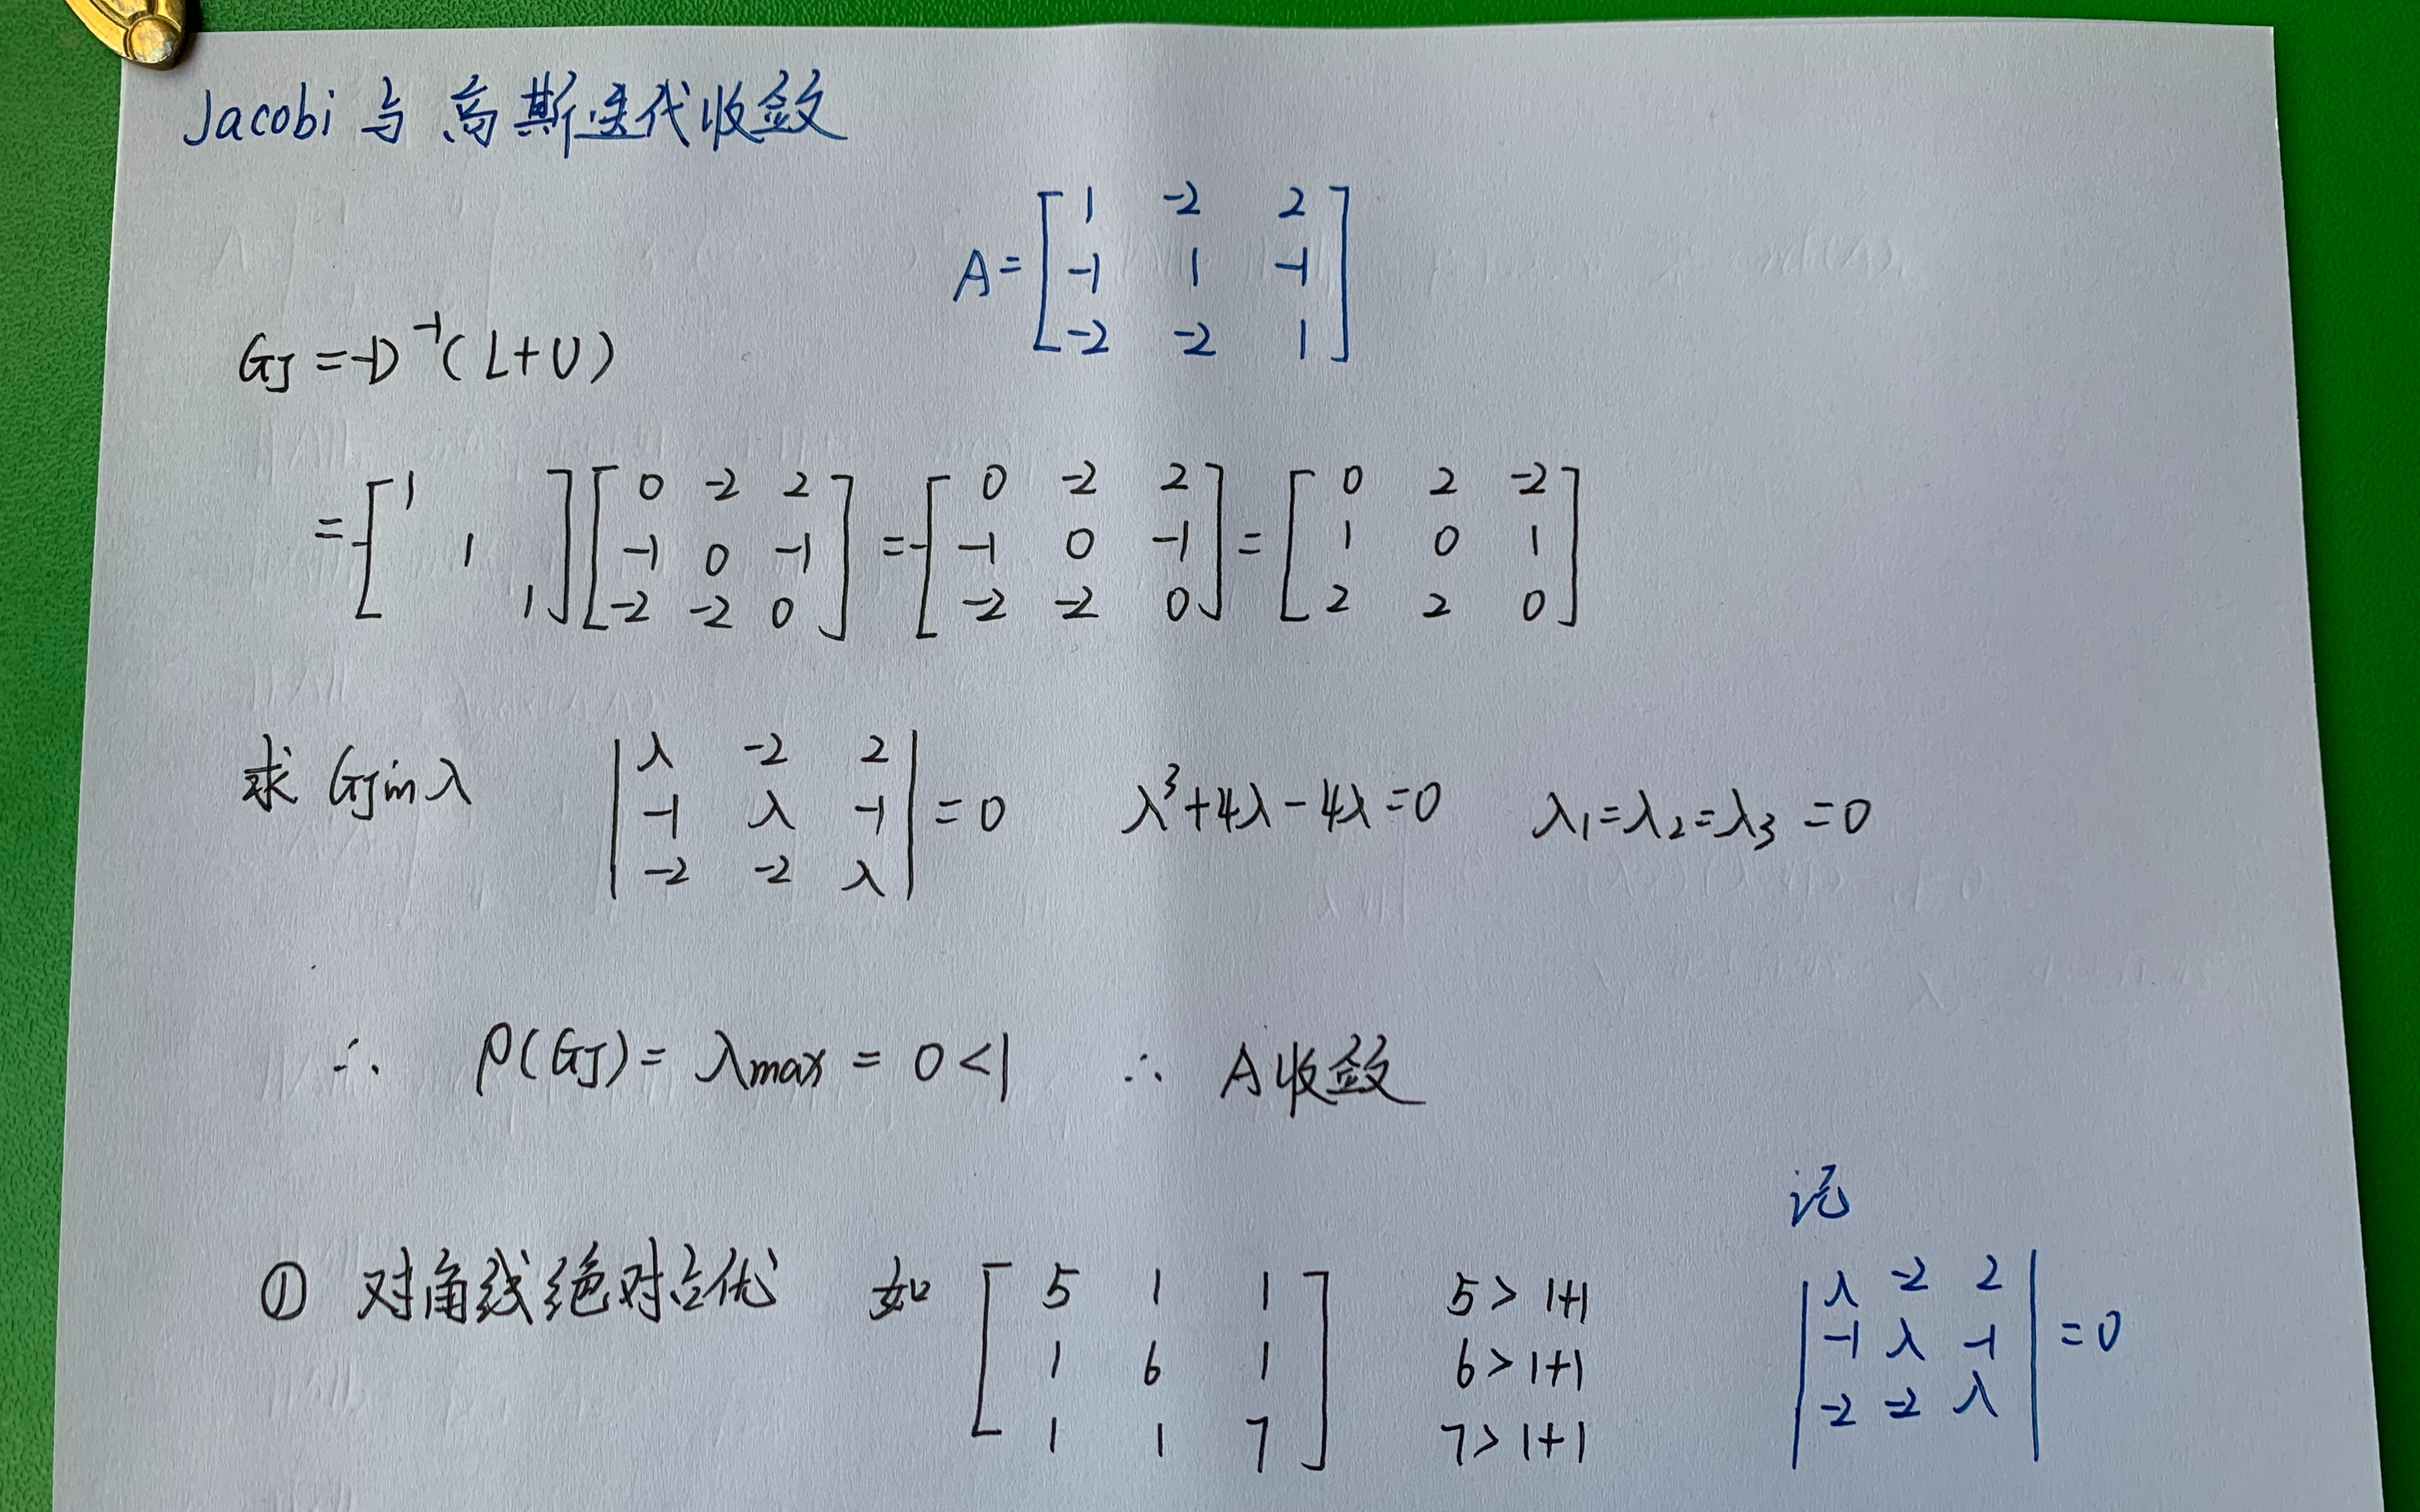 Jacobi 与高斯迭代收敛
A = [ 1 -2 2
-1 1 -1
-2 -2 1 ]
GJ = -D⁻¹(L+U)
= -[ 1 1 1 ] [ 0 -2 2 ; -1 0 -1 ; -2 -2 0 ] = -[ 0 -2 2 ; -1 0 -1 ; -2 -2 0 ] = [ 0 2 -2 ; 1 0 1 ; 2 2 0 ]
求 GJ的λ | λ -2 2 ; -1 λ -1 ; -2 -2 λ | = 0 λ³+4λ-4λ=0 λ₁=λ₂=λ₃=0
∴ ρ(GJ) = λmax = 0<1 ∴ A收敛
① 对角线绝对占优 如 [ 5 1 1 ; 1 6 1 ; 1 1 7 ] 5>1+1
6>1+1
7>1+1
记
| λ -2 2
-1 λ -1
-2 -2 λ | = 0